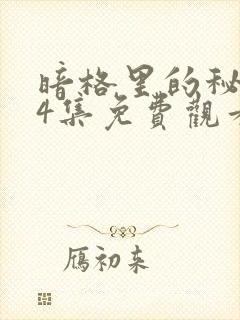 暗格里的秘
4集免費觀
雁初来